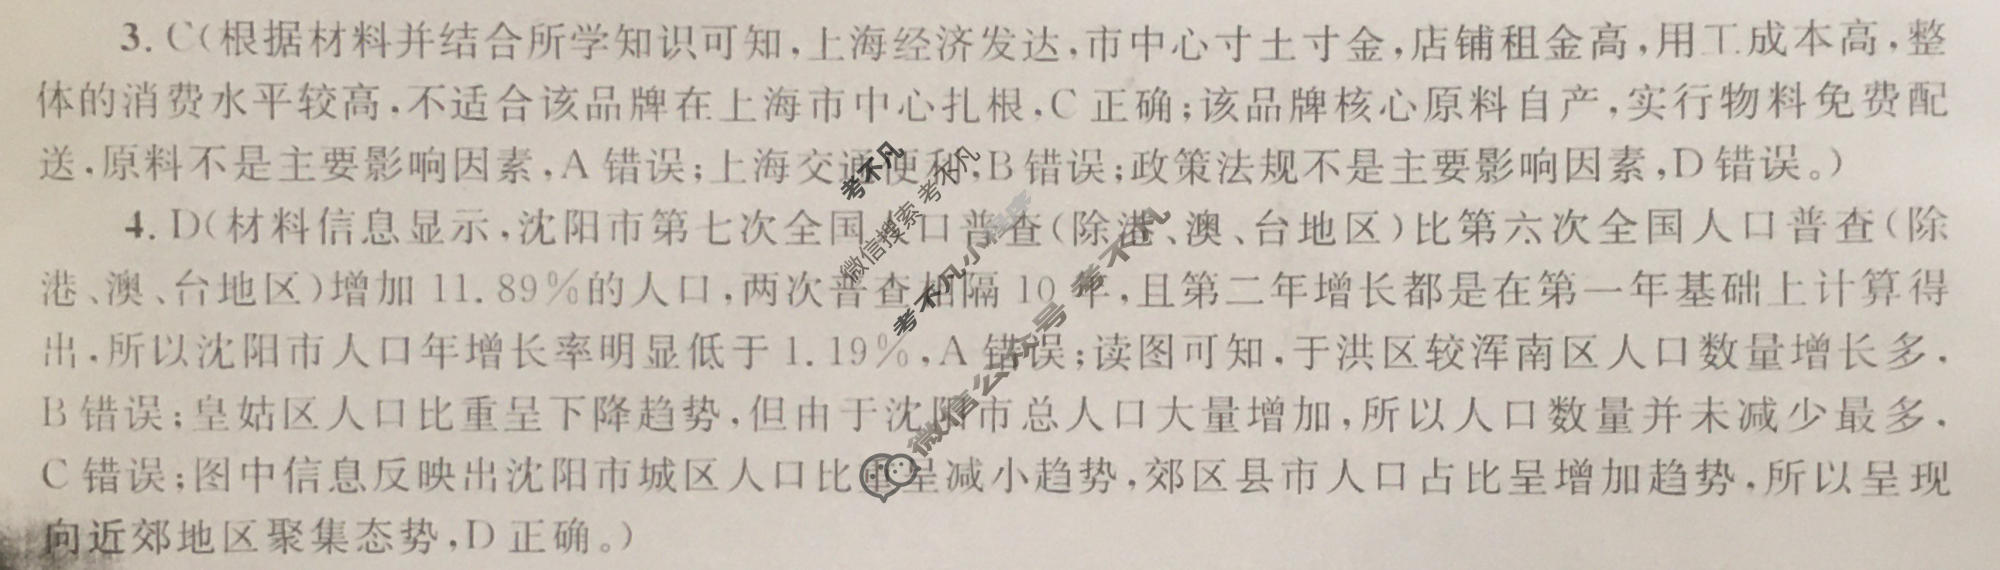 3. C(根据材料并结合所学知识可知,上海经济发达,市中心寸土寸金,店铺租金高,用工成本高,整
体的消费水平较高,不适合该品牌在上海市中心扎根,C 正确;该品牌核心原料自产,实行物料免费配
送,原料不是主要影响因素,A 错误;上海交通便利,B 错误;政策法规不是主要影响因素,D 错误。)
4. D(材料信息显示,沈阳市第七次全国人口普查(除港、澳、台地区)比第六次全国人口普查(除
港、澳、台地区)增加 11.89%的人口,两次普查相隔 10 年,且第二年增长都是在第一年基础上计算得
出,所以沈阳市人口年增长率明显低于 1.19%,A 错误;读图可知,于洪区较浑南区人口数量增长多,
B 错误;皇姑区人口比重呈下降趋势,但由于沈阳市总人口大量增加,所以人口数量并未减少最多,
C 错误;图中信息反映出沈阳市城区人口比重呈减小趋势,郊区县市人口占比呈增加趋势,所以呈现
向近郊地区聚集态势,D 正确。)
考不凡
微信搜索 考不凡
考不凡小程序
微信公众号 考不凡